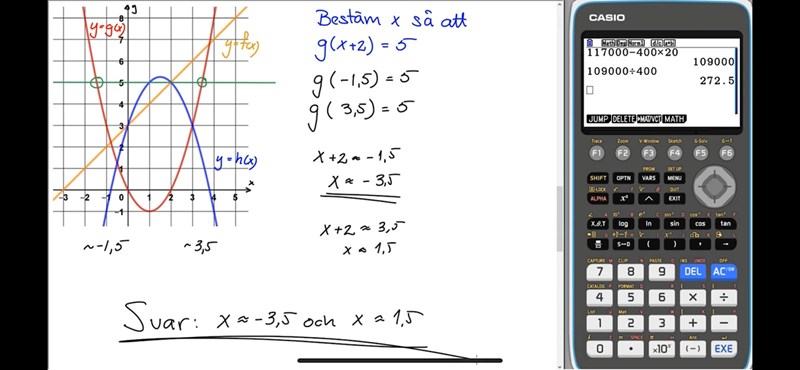 y
8
y=g(x)
7
y=f(x)
6
5
4
3
2
1
y=h(x)
x
-3 -2 -1 1 2 3 4 5
-1
~-1,5 ~3,5
Bestäm x så att
g(x+2) = 5
g(-1,5) = 5
g( 3,5) = 5
x+2 ≈ -1,5
x ≈ -3,5
x+2 ≈ 3,5
x ≈ 1,5
Svar: x ≈ -3,5 och x ≈ 1,5
CASIO
Math Deg Norm1 d/c a+bi
117000-400×20
109000
109000÷400
272.5
JUMP DELETE ►MAT/VCT MATH
Trace Zoom V-Window Sketch G-Solv G↔T
F1 F2 F3 F4 F5 F6
PRGM SET UP
SHIFT OPTN VARS MENU
A-LOCK QUIT
ALPHA x² ^ EXIT
X,θ,T log ln sin cos tan
S↔D ( ) , →
CAPTURE CLIP PASTE INS UNDO OFF
7 8 9 DEL AC/ON
CATALOG FORMAT
4 5 6 × ÷
List Mat
1 2 3 + −
SPACE Ans
0 • ×10ˣ (−) EXE